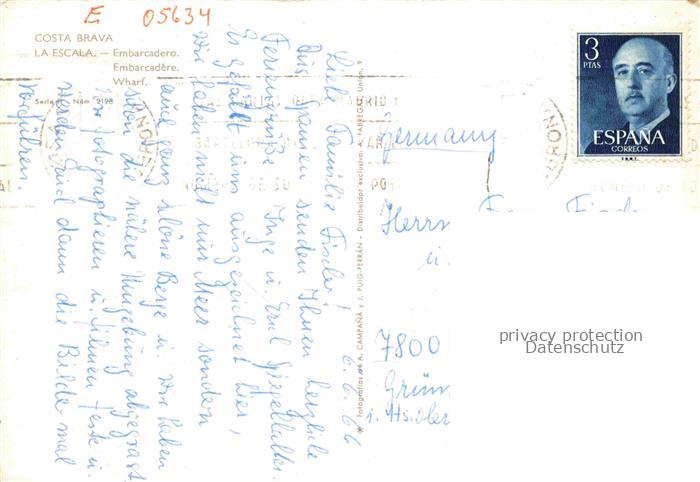 E 05634
COSTA BRAVA
LA ESCALA. — Embarcadero.
Embarcadère.
Wharf.
Núm 2198
6. 6. 66
Liebe Familie Fischer!
Aus Spanien senden Ihnen herzliche
Feriengrüße Inge u. Emil
Es gefällt uns ausgezeichnet hier,
Wir haben nicht nur Meer sondern
auch ganz schöne Berge u. Wir haben
schon die nähere Umgebung abgegrast
Wir photographieren u. filmen feste u.
werden Euch dann die Bilde mal
vorführen.
✻ Fotografías de A. CAMPAÑÁ y J. PUIG-FERRÁN - Distribuidor exclusivo: A. FÁBREGAS, Unión, 9
3
PTAS
ESPAÑA
CORREOS
Germany
Herrn
u.
7800
privacy protection
Datenschutz